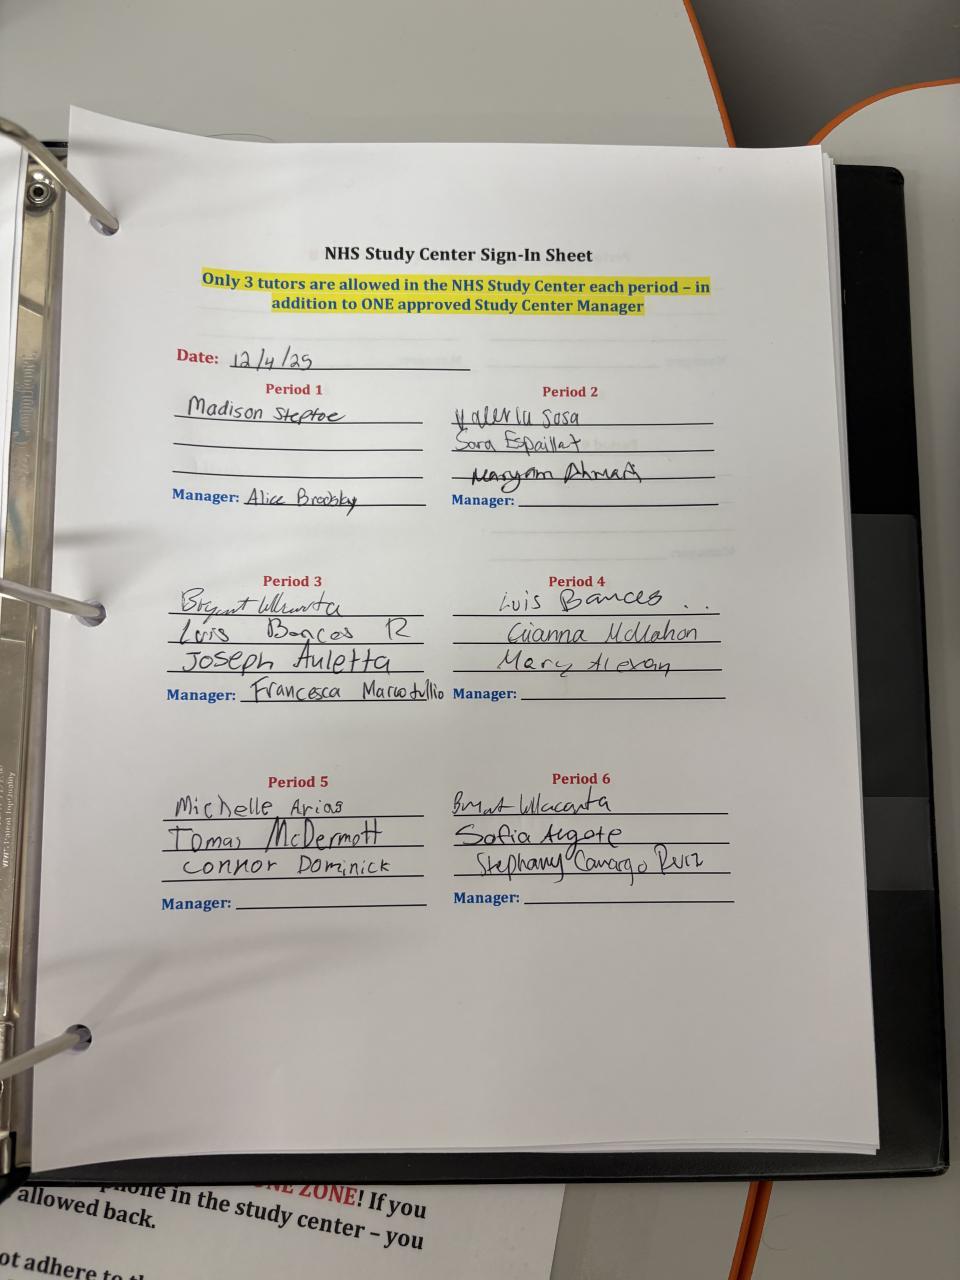 NHS Study Center Sign-In Sheet
Only 3 tutors are allowed in the NHS Study Center each period – in
addition to ONE approved Study Center Manager
Date: 12/4/25
Period 1
Madison Steptoe
Manager: Alice Brodsky
Period 2
Valeria Sosa
Sara Espaillat
Maryam Ahmad
Manager:
Period 3
Bryant
Luis Bances R
Joseph Auletta
Manager: Francesca Marcotullio
Period 4
Luis Bances ..
Gianna McMahon
Mary Alexan
Manager:
Period 5
Michelle Arias
Tomas McDermott
Connor Dominick
Manager:
Period 6
Sofia Algote
Stephany Camargo Ruiz
Manager:
NE ZONE! If you
phone in the study center – you
allowed back.
ot adhere to